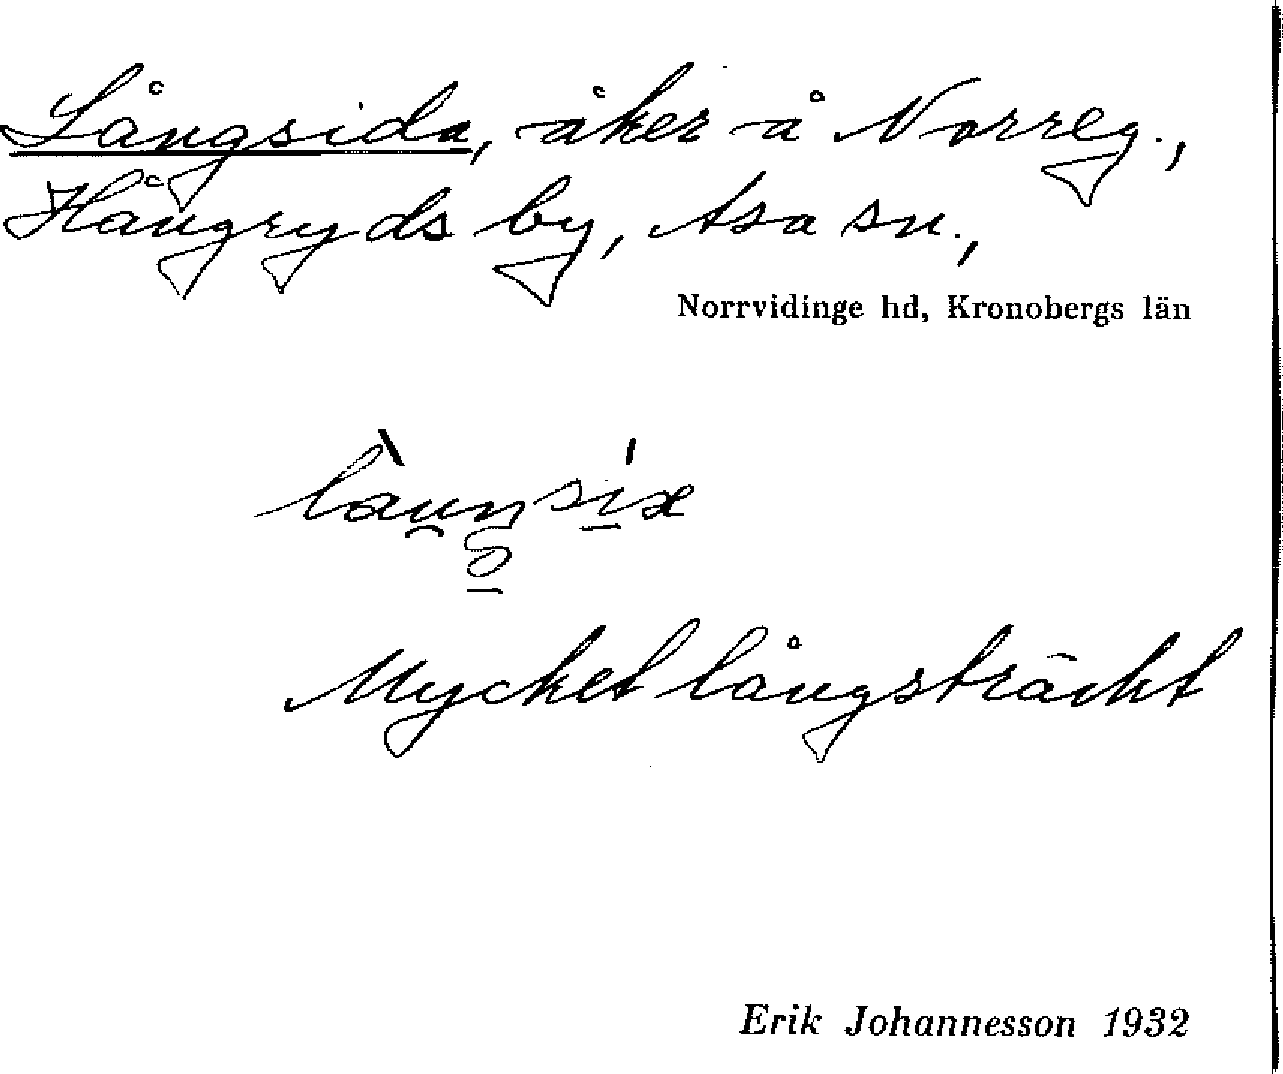 Långsida, åker å Norreg.,
Hångryds by, Asa sn.,
Norrvidinge hd, Kronobergs län
Mycket långsträckt
Erik Johannesson 1932